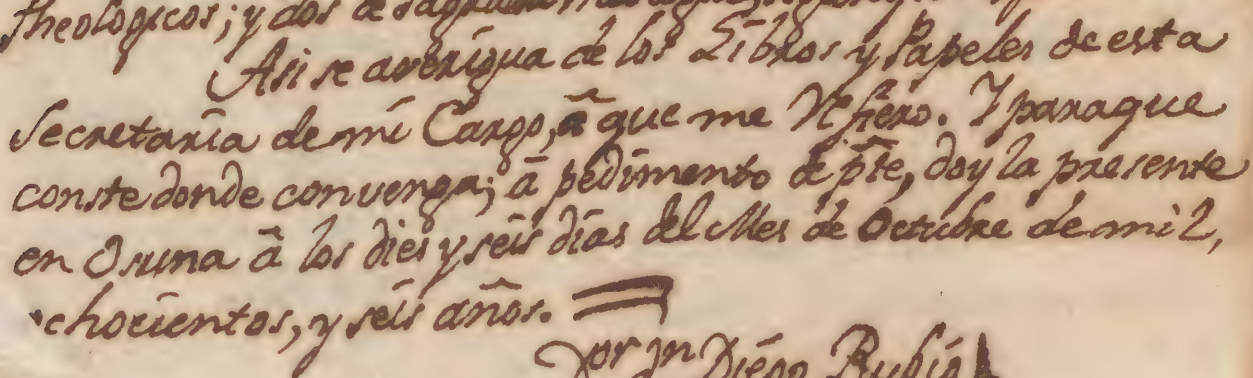 theologicos; y dos de sagrada
Asi se averigua de los Libros y Papeles de esta
Secretaría de mi Cargo, â que me Refiero. Y paraque
conste donde convenga; â pedimento de pte, doy la presente
en Osuna â los dies y seis dias del Mes de Octubre de mil,
ochocientos, y seis años.
Dor Dn Diego Rubio